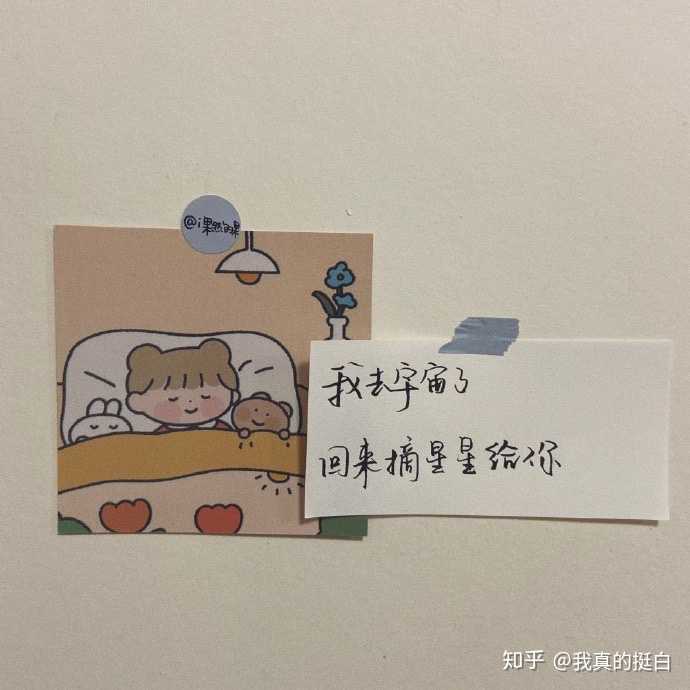 @i果然的果
我去宇宙了
回来摘星星给你
知乎 @我真的挺白